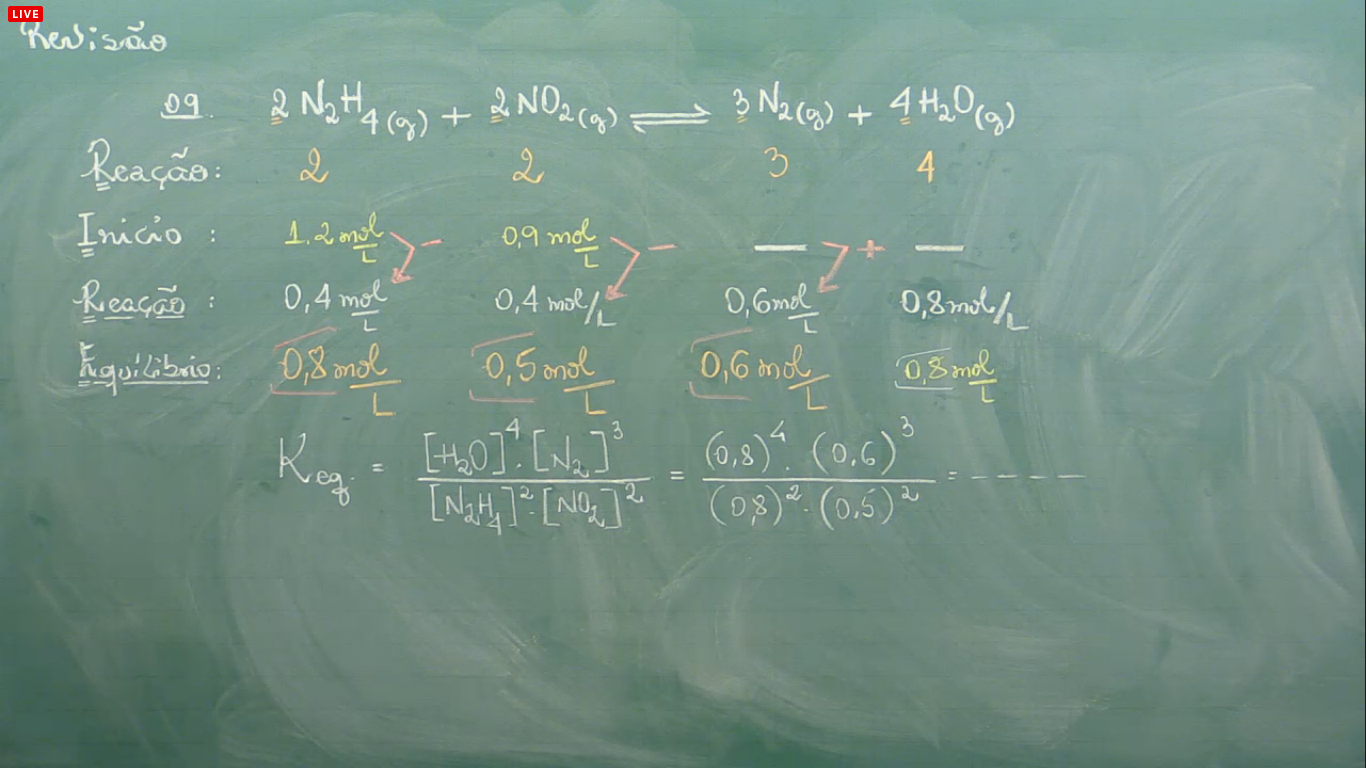 LIVE
Revisão
09. 2 N₂H₄(g) + 2 NO₂(g) ⇌ 3 N₂(g) + 4 H₂O(g)
Reação: 2 2 3 4
Inicio : 1.2 mol/L − 0,9 mol/L − — + —
Reação : 0,4 mol/L 0,4 mol/L 0,6 mol/L 0,8 mol/L
Equilíbrio: 0,8 mol/L 0,5 mol/L 0,6 mol/L 0,8 mol/L
Keq. = [H₂O]⁴·[N₂]³ / [N₂H₄]²·[NO₂]² = (0,8)⁴·(0,6)³ / (0,8)²·(0,5)² = -----